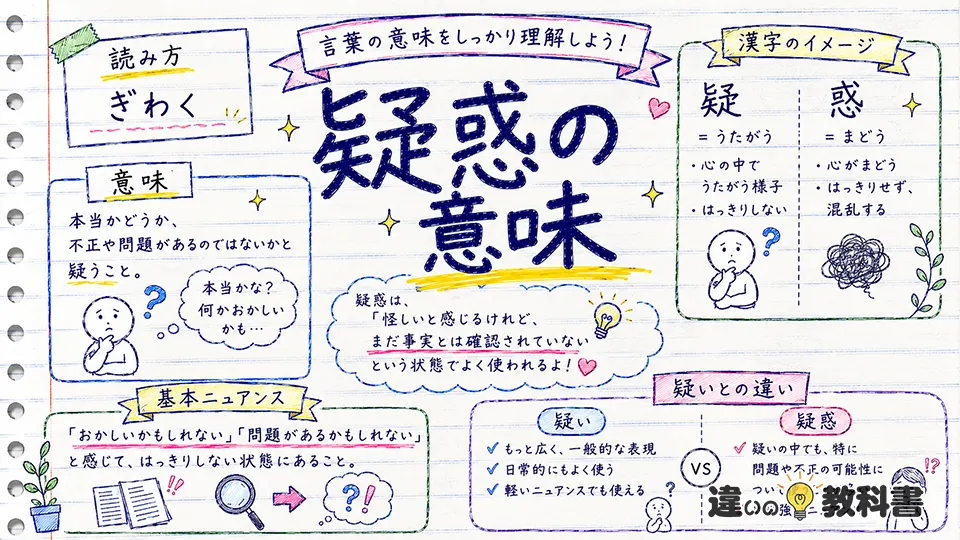 言葉の意味をしっかり理解しよう!
疑惑の
意味
読み方
ぎわく
意味
本当かどうか、
不正や問題があるのではないかと
疑うこと。
本当かな?
何かおかしい
かも…
?
漢字のイメージ
疑
=うたがう
・心の中で
うたがう様子
・はっきりしない
?
惑
=まどう
・心がまどう
・はっきりせず、
混乱する
疑惑は、
「怪しいと感じるけれど、
まだ事実とは確認されていない
という状態でよく使われるよ!
基本ニュアンス
「おかしいかもしれない」「問題があるかもしれない」
と感じて、はっきりしない状態にあること。
!!
?!
疑いとの違い
疑い
もっと広く、一般的な表現
日常的にもよく使う
軽いニュアンスでも使える
?
VS
疑惑
疑いの中でも、特に
問題や不正の可能性に
つい
強
!?
違いの教科書